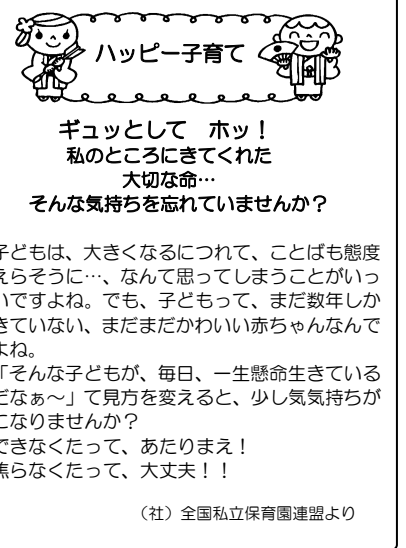 ハッピー子育て
ギュッとして　ホッ！
私のところにきてくれた
大切な命…
そんな気持ちを忘れていませんか？
子どもは、大きくなるにつれて、ことばも態度
えらそうに…、なんて思ってしまうことがいっ
いですよね。でも、子どもって、まだ数年しか
きていない、まだまだかわいい赤ちゃんなんで
よね。
「そんな子どもが、毎日、一生懸命生きている
だなぁ～」て見方を変えると、少し気気持ちが
になりませんか？
できなくたって、あたりまえ！
焦らなくたって、大丈夫！！
（社）全国私立保育園連盟より